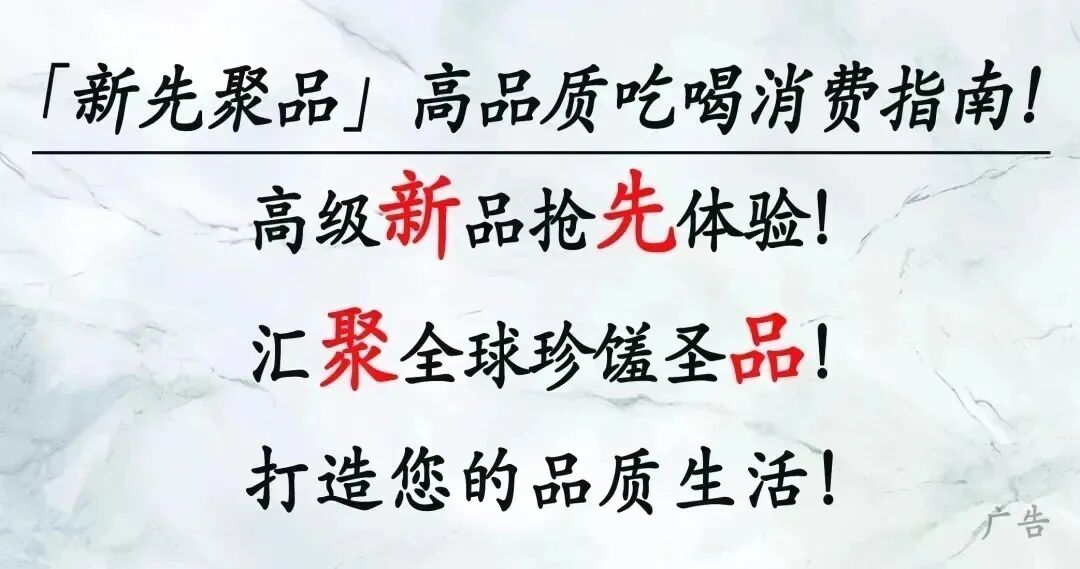 「新先聚品」高品质吃喝消费指南!
高级新品抢先体验!
汇聚全球珍馐圣品!
打造您的品质生活!
广告